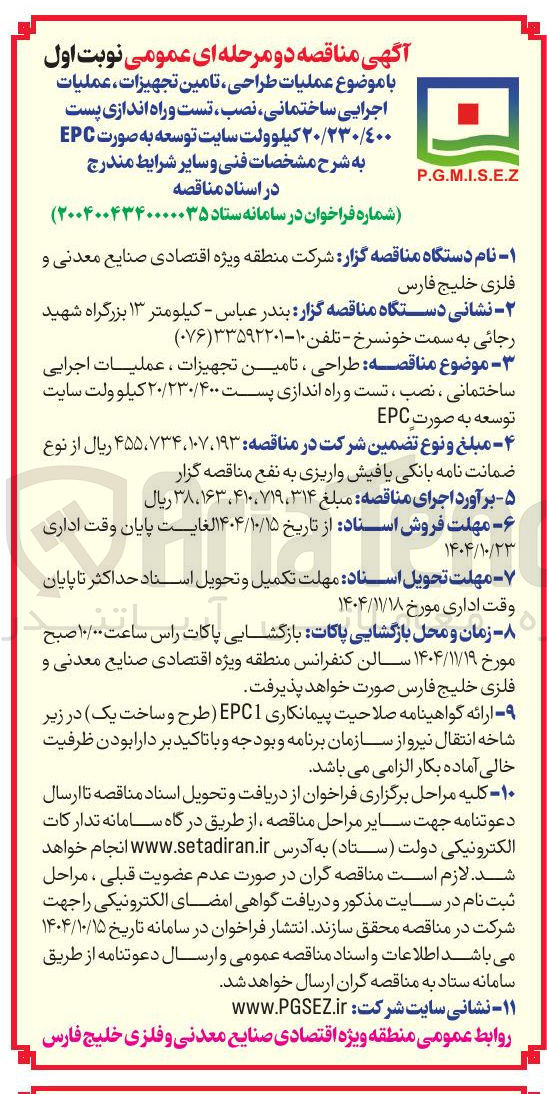 آگهی مناقصه دو مرحله ای عمومی نوبت اول
با موضوع عملیات طراحی، تامین تجهیزات، عملیات
اجرایی ساختمانی، نصب، تست و راه اندازی پست
۲۰/۲۳۰/۴۰۰ کیلو ولت سایت توسعه به صورت EPC
به شرح مشخصات فنی و سایر شرایط مندرج
در اسناد مناقصه
(شماره فراخوان در سامانه ستاد ۲۰۰۴۰۰۴۳۴۰۰۰۰۰۳۵)
P.G.M.I.S.E.Z
۱- نام دستگاه مناقصه گزار: شرکت منطقه ویژه اقتصادی صنایع معدنی و
فلزی خلیج فارس
۲- نشانی دستگاه مناقصه گزار: بندر عباس - کیلومتر ۱۳ بزرگراه شهید
رجائی به سمت خونسرخ - تلفن ۱۰-۳۳۵۹۲۲۰۱(۰۷۶)
۳- موضوع مناقصه: طراحی ، تامین تجهیزات ، عملیات اجرایی
ساختمانی ، نصب ، تست و راه اندازی پست ۲۰/۲۳۰/۴۰۰ کیلو ولت سایت
توسعه به صورت EPC
۴- مبلغ و نوع تضمین شرکت در مناقصه: ۴۵۵،۷۳۴،۱۰۷،۱۹۳ ریال از نوع
ضمانت نامه بانکی یا فیش واریزی به نفع مناقصه گزار
۵- برآورد اجرای مناقصه: مبلغ ۳۸،۱۶۳،۴۱۰،۷۱۹،۳۱۴ ریال
۶- مهلت فروش اسناد: از تاریخ ۱۴۰۴/۱۰/۱۵ لغایت پایان وقت اداری
۱۴۰۴/۱۰/۲۳
۷- مهلت تحویل اسناد: مهلت تکمیل و تحویل اسناد حداکثر تا پایان
وقت اداری مورخ ۱۴۰۴/۱۱/۱۸
۸- زمان و محل بازگشایی پاکات: بازگشایی پاکات راس ساعت ۱۰/۰۰ صبح
مورخ ۱۴۰۴/۱۱/۱۹ سالن کنفرانس منطقه ویژه اقتصادی صنایع معدنی و
فلزی خلیج فارس صورت خواهد پذیرفت.
۹- ارائه گواهینامه صلاحیت پیمانکاری EPC1 (طرح و ساخت یک) در زیر
شاخه انتقال نیرو از سازمان برنامه و بودجه و با تاکید بر دارا بودن ظرفیت
خالی آماده بکار الزامی می باشد.
۱۰- کلیه مراحل برگزاری فراخوان از دریافت و تحویل اسناد مناقصه تا ارسال
دعوتنامه جهت سایر مراحل مناقصه ، از طریق درگاه سامانه تدارکات
الکترونیکی دولت (ستاد) به آدرس www.setadiran.ir انجام خواهد
شد. لازم است مناقصه گران در صورت عدم عضویت قبلی ، مراحل
ثبت نام در سایت مذکور و دریافت گواهی امضای الکترونیکی را جهت
شرکت در مناقصه محقق سازند. انتشار فراخوان در سامانه تاریخ ۱۴۰۴/۱۰/۱۵
می باشد اطلاعات و اسناد مناقصه عمومی و ارسال دعوتنامه از طریق
سامانه ستاد به مناقصه گران ارسال خواهد شد.
۱۱- نشانی سایت شرکت: www.PGSEZ.ir
روابط عمومی منطقه ویژه اقتصادی صنایع معدنی و فلزی خلیج فارس